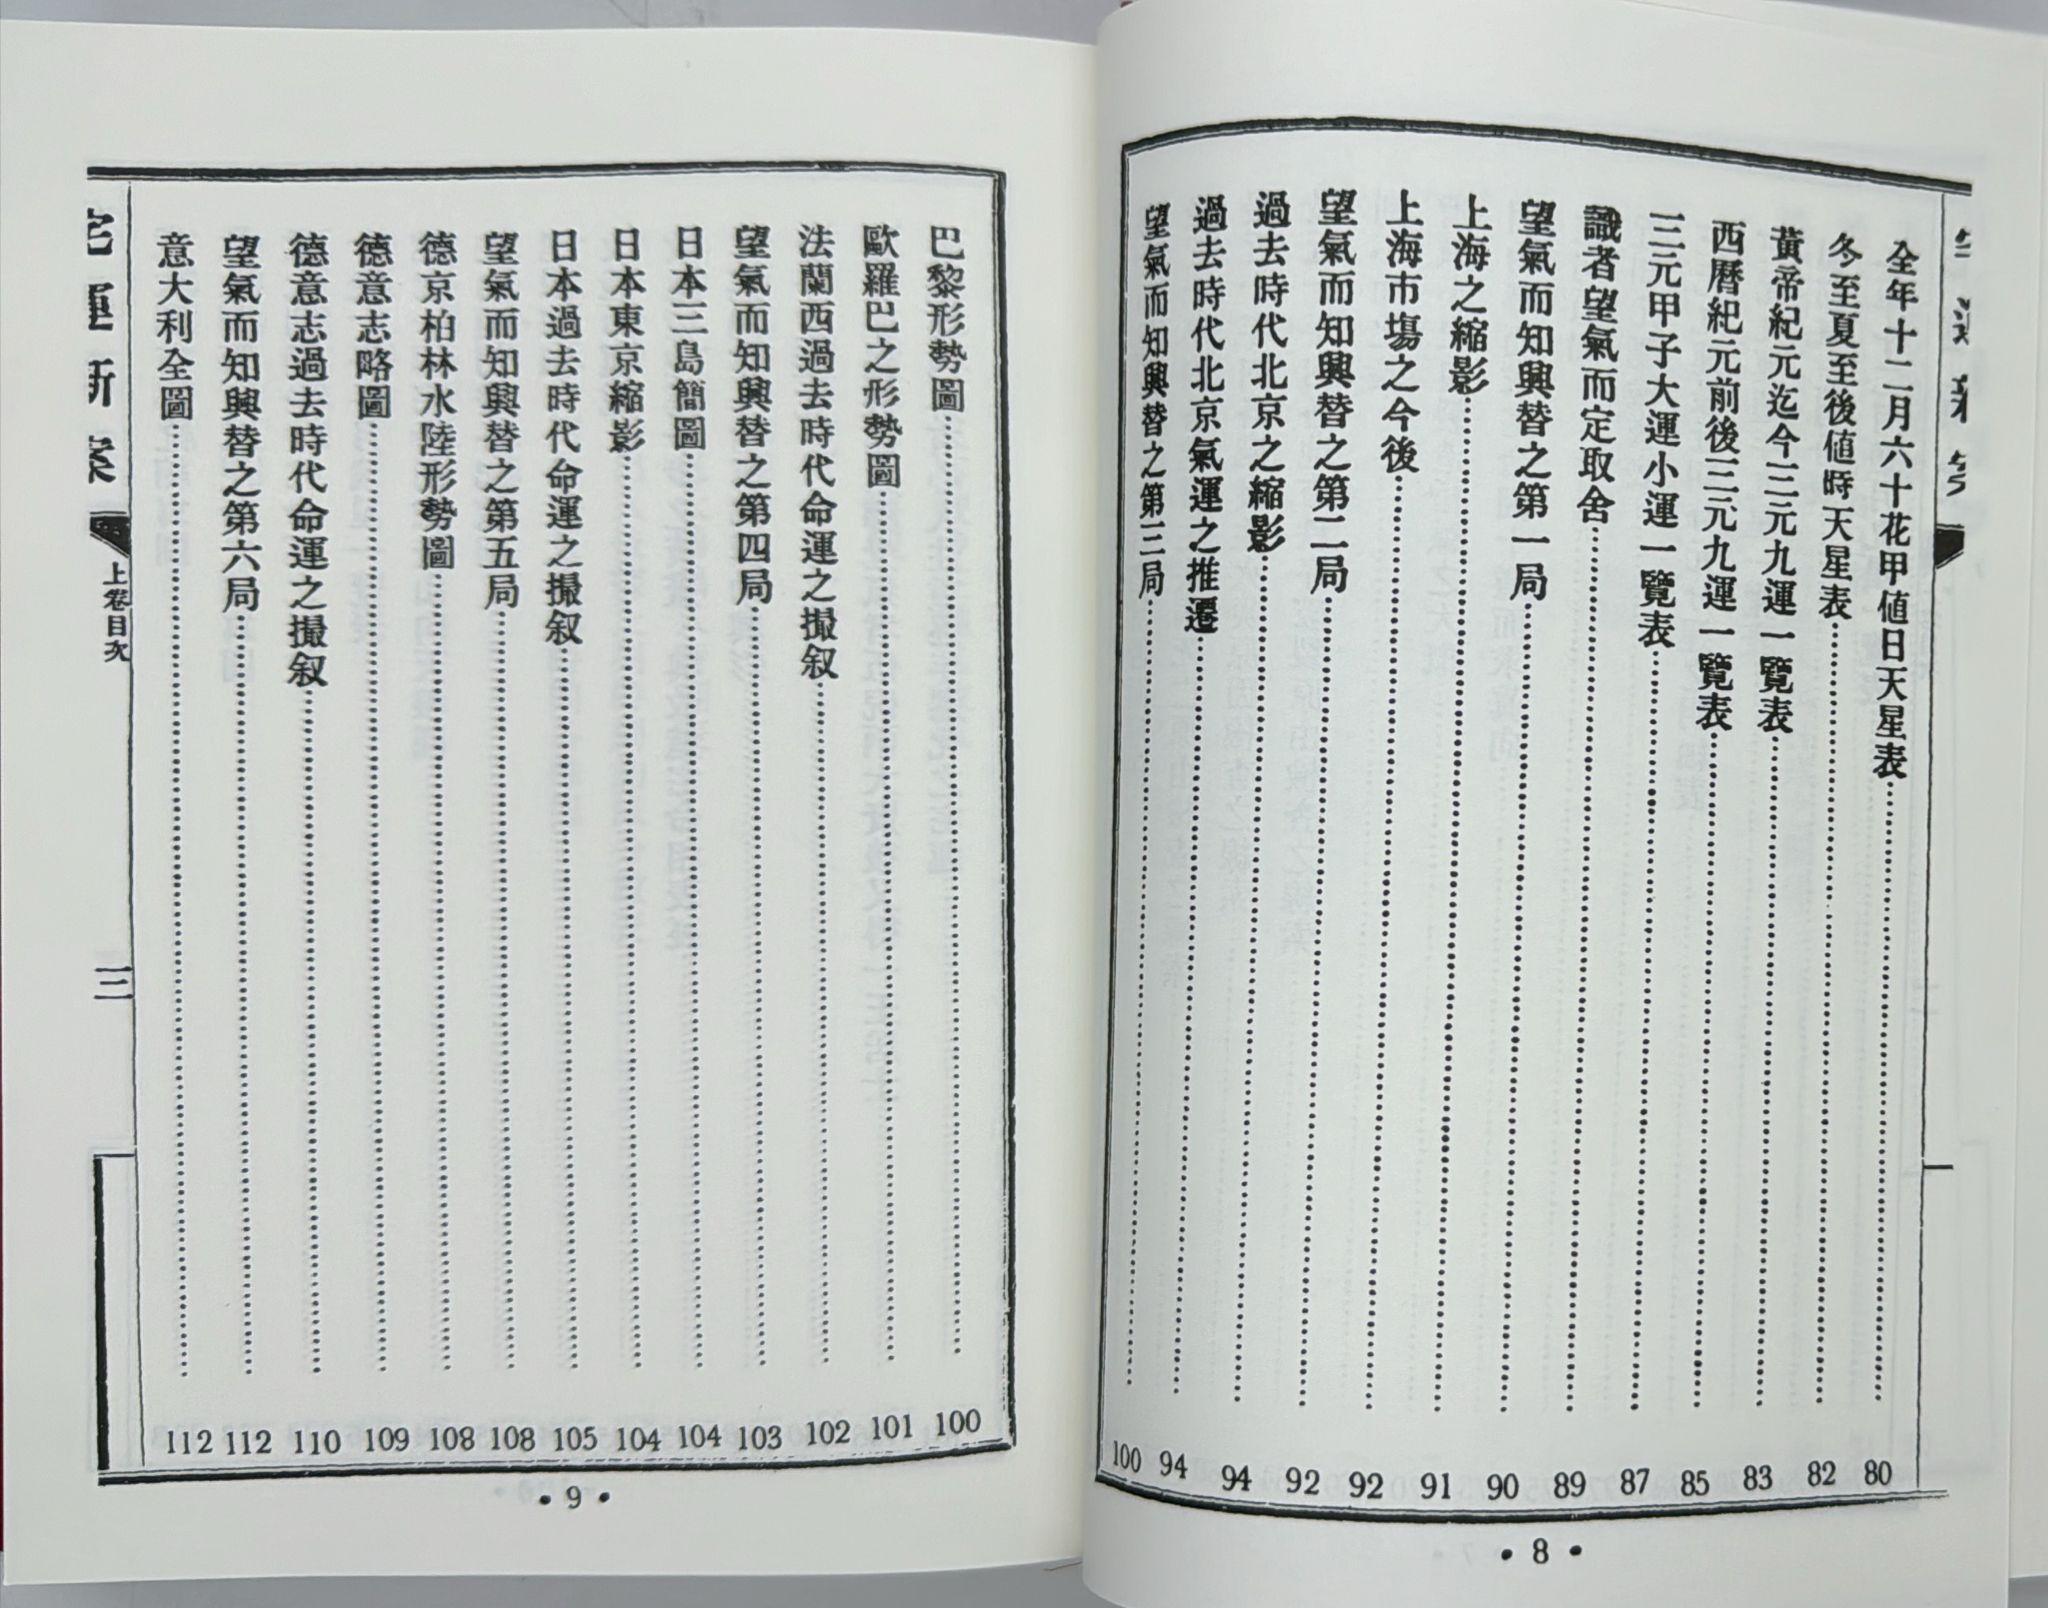 全年十二月六十花甲値日天星表 80
冬至夏至後値時天星表 82
黃帝紀元迄今三元九運一覽表 83
西曆紀元前後三元九運一覽表 85
三元甲子大運小運一覽表 87
識者望氣而定取舍 89
望氣而知興替之第一局 90
上海之縮影 91
上海市場之今後 92
望氣而知興替之第二局 92
過去時代北京之縮影 94
過去時代北京氣運之推遷 94
望氣而知興替之第三局 100
•8•
巴黎形勢圖 100
歐羅巴之形勢圖 101
法蘭西過去時代命運之撮叙 102
望氣而知興替之第四局 103
日本三島簡圖 104
日本東京縮影 104
日本過去時代命運之撮叙 105
望氣而知興替之第五局 108
德京柏林水陸形勢圖 108
德意志略圖 109
德意志過去時代命運之撮叙 110
望氣而知興替之第六局 112
意大利全圖 112
宅運新案
上卷目次
三
•9•